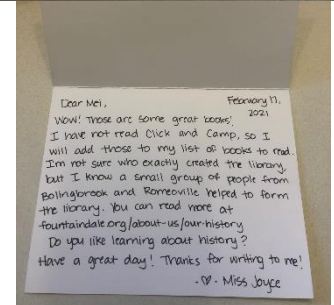 Dear Mei,
February 17,
2021
Wow! Those are some great books!
I have not read Click and Camp, so I
will add those to my list of books to read.
I'm not sure who exactly created the library,
but I know a small group of people from
Bolingbrook and Romeoville helped to form
the library. You can read more at
fountaindale.org/about-us/our-history
Do you like learning about history?
Have a great day! Thanks for writing to me!
-♡- Miss Joyce